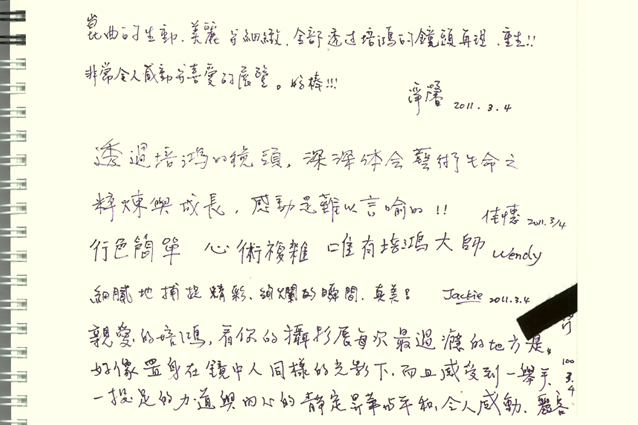 崑曲的生動、美麗与細緻，全部透過培鴻的鏡頭再現，重生!!
非常令人感動与喜愛的展覽。好棒!!!
2011.3.4
透過培鴻的鏡頭，深深体会藝術生命之
粹煉與成長，感動是難以言喻的!!
佳憓 2011.3/4
行色簡單 心術複雜 唯有培鴻大師 Wendy
細膩地捕捉精彩、絢爛的瞬間，真美! Jackie 2011.3.4
親愛的培鴻，看你的攝影展每次最過癮的地方是，
好像置身在鏡中人同樣的光影下，而且感受到一舉手
一投足的力道與內心的靜定昇華與平和，令人感動、
100.3.4